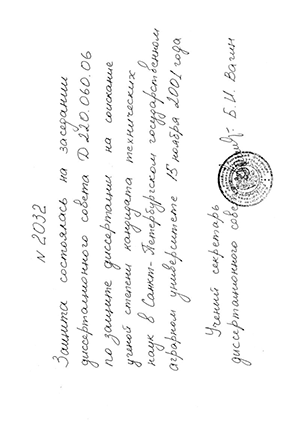 N 2032
Защита состоялась на заседании
диссертационного совета Д 220.060.06
по защите диссертации на соискание
ученой степени кандидата технических
наук в Санкт-Петербургском государственном
аграрном университете 15 ноября 2001 года
Ученый секретарь
диссертационного сове Б.И. Вагин